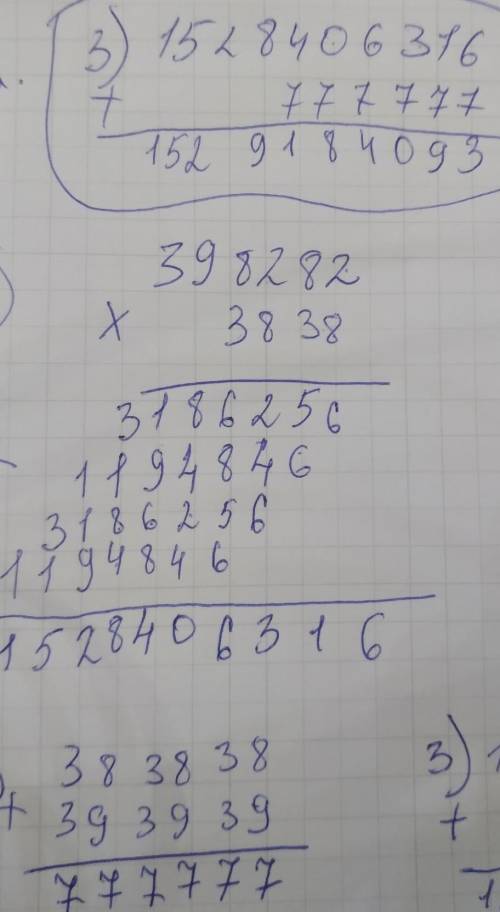 3) 1528406316
+ 777777
1529184093
398282
x 3838
3186256
1194846
3186256
1194846
1528406316
383838
+ 393939
777777
3) 1
+
1